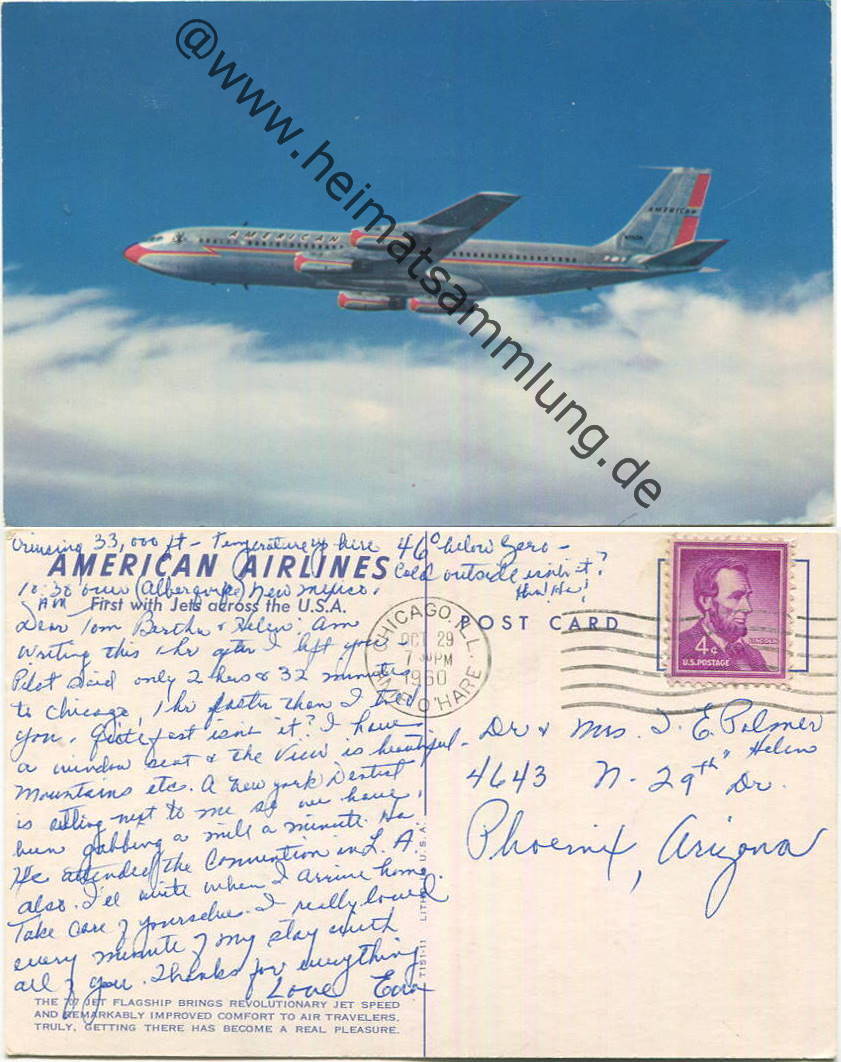 @www.heimatsammlung.de
AMERICAN
AMERICAN
cruising 33,000 ft - Temperature up here 46° below Zero -
Cold outside isn't it?
Ha! Ha!
AMERICAN AIRLINES
10:30 over (Alberqurke) New Mexico.
AM
First with Jets across the U.S.A.
Dear Tom Bertha & Helen: Am
writing this 1 hr after I left you -
Pilot said only 2 hrs & 32 minutes
to Chicago, 1 hr faster than I told
you. Quite fast isn't it? I have
a window seat & the view is beautiful -
Mountains etc. A New York Dentist
is sitting next to me so we have
been gabbing a mile a minute. He
He attended the Convention in L.A.
also. I'll write when I arrive home.
Take care of yourselves. I really loved
every minute of my stay with
all of you. Thanks for everything
Love
THE 707 JET FLAGSHIP BRINGS REVOLUTIONARY JET SPEED
AND REMARKABLY IMPROVED COMFORT TO AIR TRAVELERS.
TRULY, GETTING THERE HAS BECOME A REAL PLEASURE.
T151-11 LITHO U.S.A.
POST CARD
CHICAGO, ILL.
OCT 29
7 PM
1960
O'HARE
4¢
LINCOLN
U.S. POSTAGE
Dr & Mrs. T. E. Palmer
" Helen
4643 N. 29th Dr.
Phoenix, Arizona